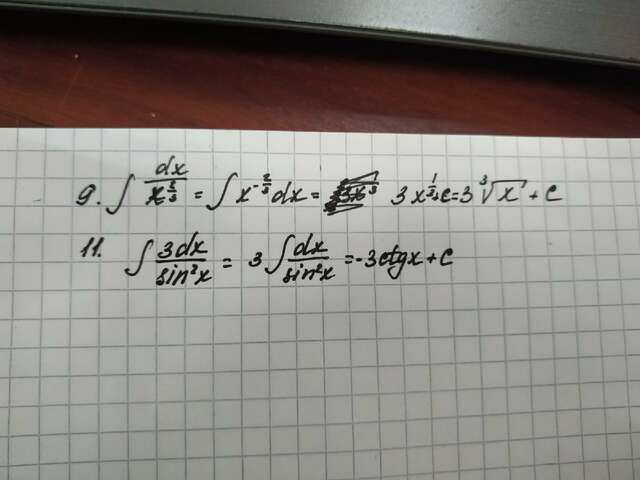 9. ∫ dx/x^(2/3) = ∫ x^(-2/3) dx = 3x^(1/3) + C = 3∛x + C
11. ∫ 3dx/sin²x = 3 ∫ dx/sin²x = -3ctgx + C